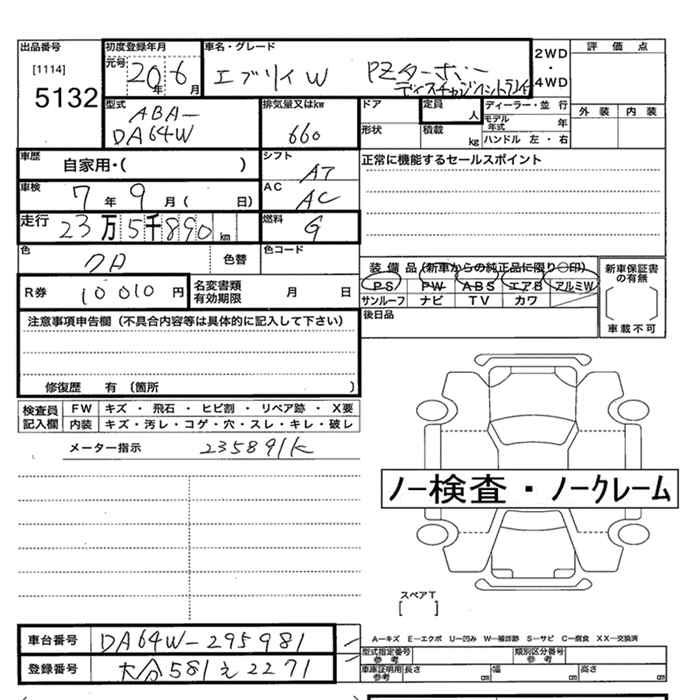 出品番号
[1114]
5132
初度登録年月
元号 20年 6月
車名・グレード
エブリイW PZターボ
ディスチャージ
2WD
・
4WD
評価点
外装 内装
型式
ABA-
DA64W
排気量又はkw
660
ドア
定員 人
ディーラー・並行
モデル年式 年
形状
積載 kg
ハンドル 左・右
車歴 自家用・( )
シフト AT
正常に機能するセールスポイント
車検 7年9月( 日)
AC AC
走行 23万5千890km
燃料 G
色 色替
色コード
装備品(新車からの純正品に限り○印)
PS PW ABS エアB アルミW
サンルーフ ナビ TV カワ
新車保証書の有無
[ ]
車載不可
R券 10010円
名変書類有効期限 月 日
後日品
注意事項申告欄(不具合内容等は具体的に記入して下さい)
修復歴 有(箇所 )
検査員記入欄
FW キズ・飛石・ヒビ割・リペア跡・X要
内装 キズ・汚レ・コゲ・穴・スレ・キレ・破レ
メーター指示 235891K
ノー検査・ノークレーム
スペアT
[ ]
車台番号 DA64W-295981
登録番号 大分581え2271
A―キズ E―エクボ U―凹み W―補修跡 S―サビ C―腐食 XX―交換済
型式指定番号 参考
類別区分番号 参考
車庫証明用 参考 長さ cm 幅 cm 高さ cm